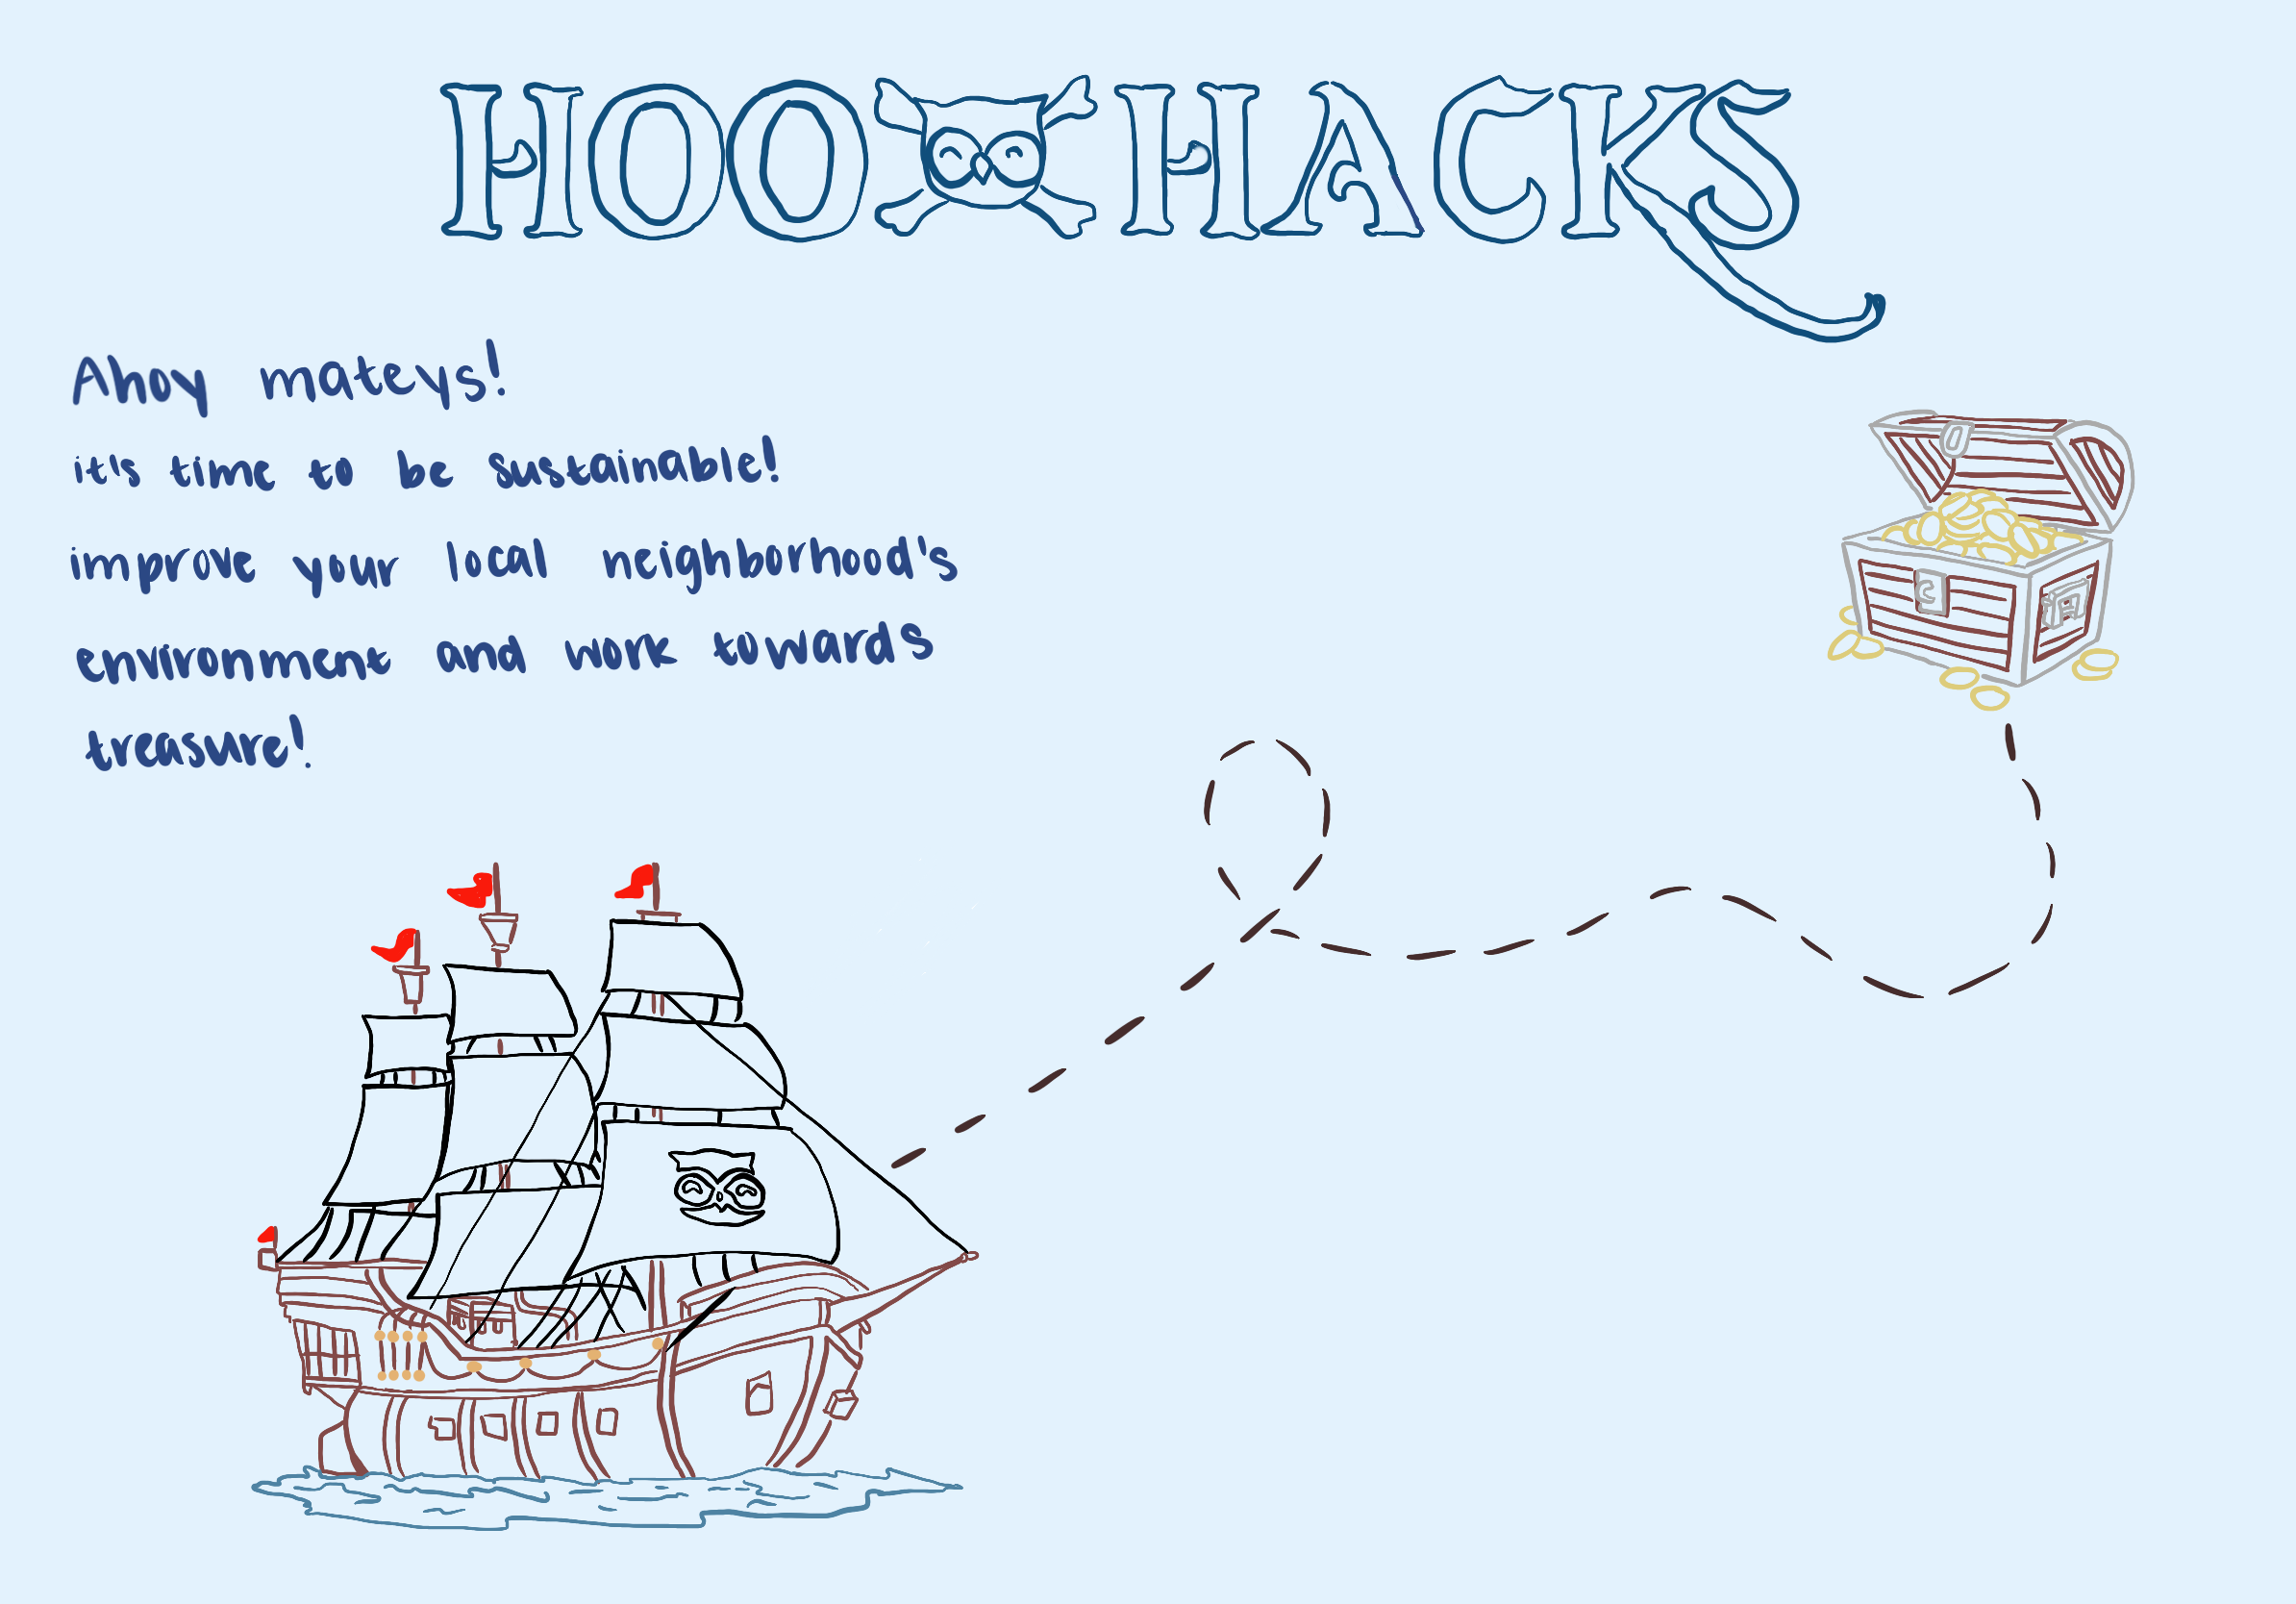 HOO HACKS
Ahoy mateys!
it's time to be sustainable!
improve your local neighborhood's
environment and work towards
treasure!